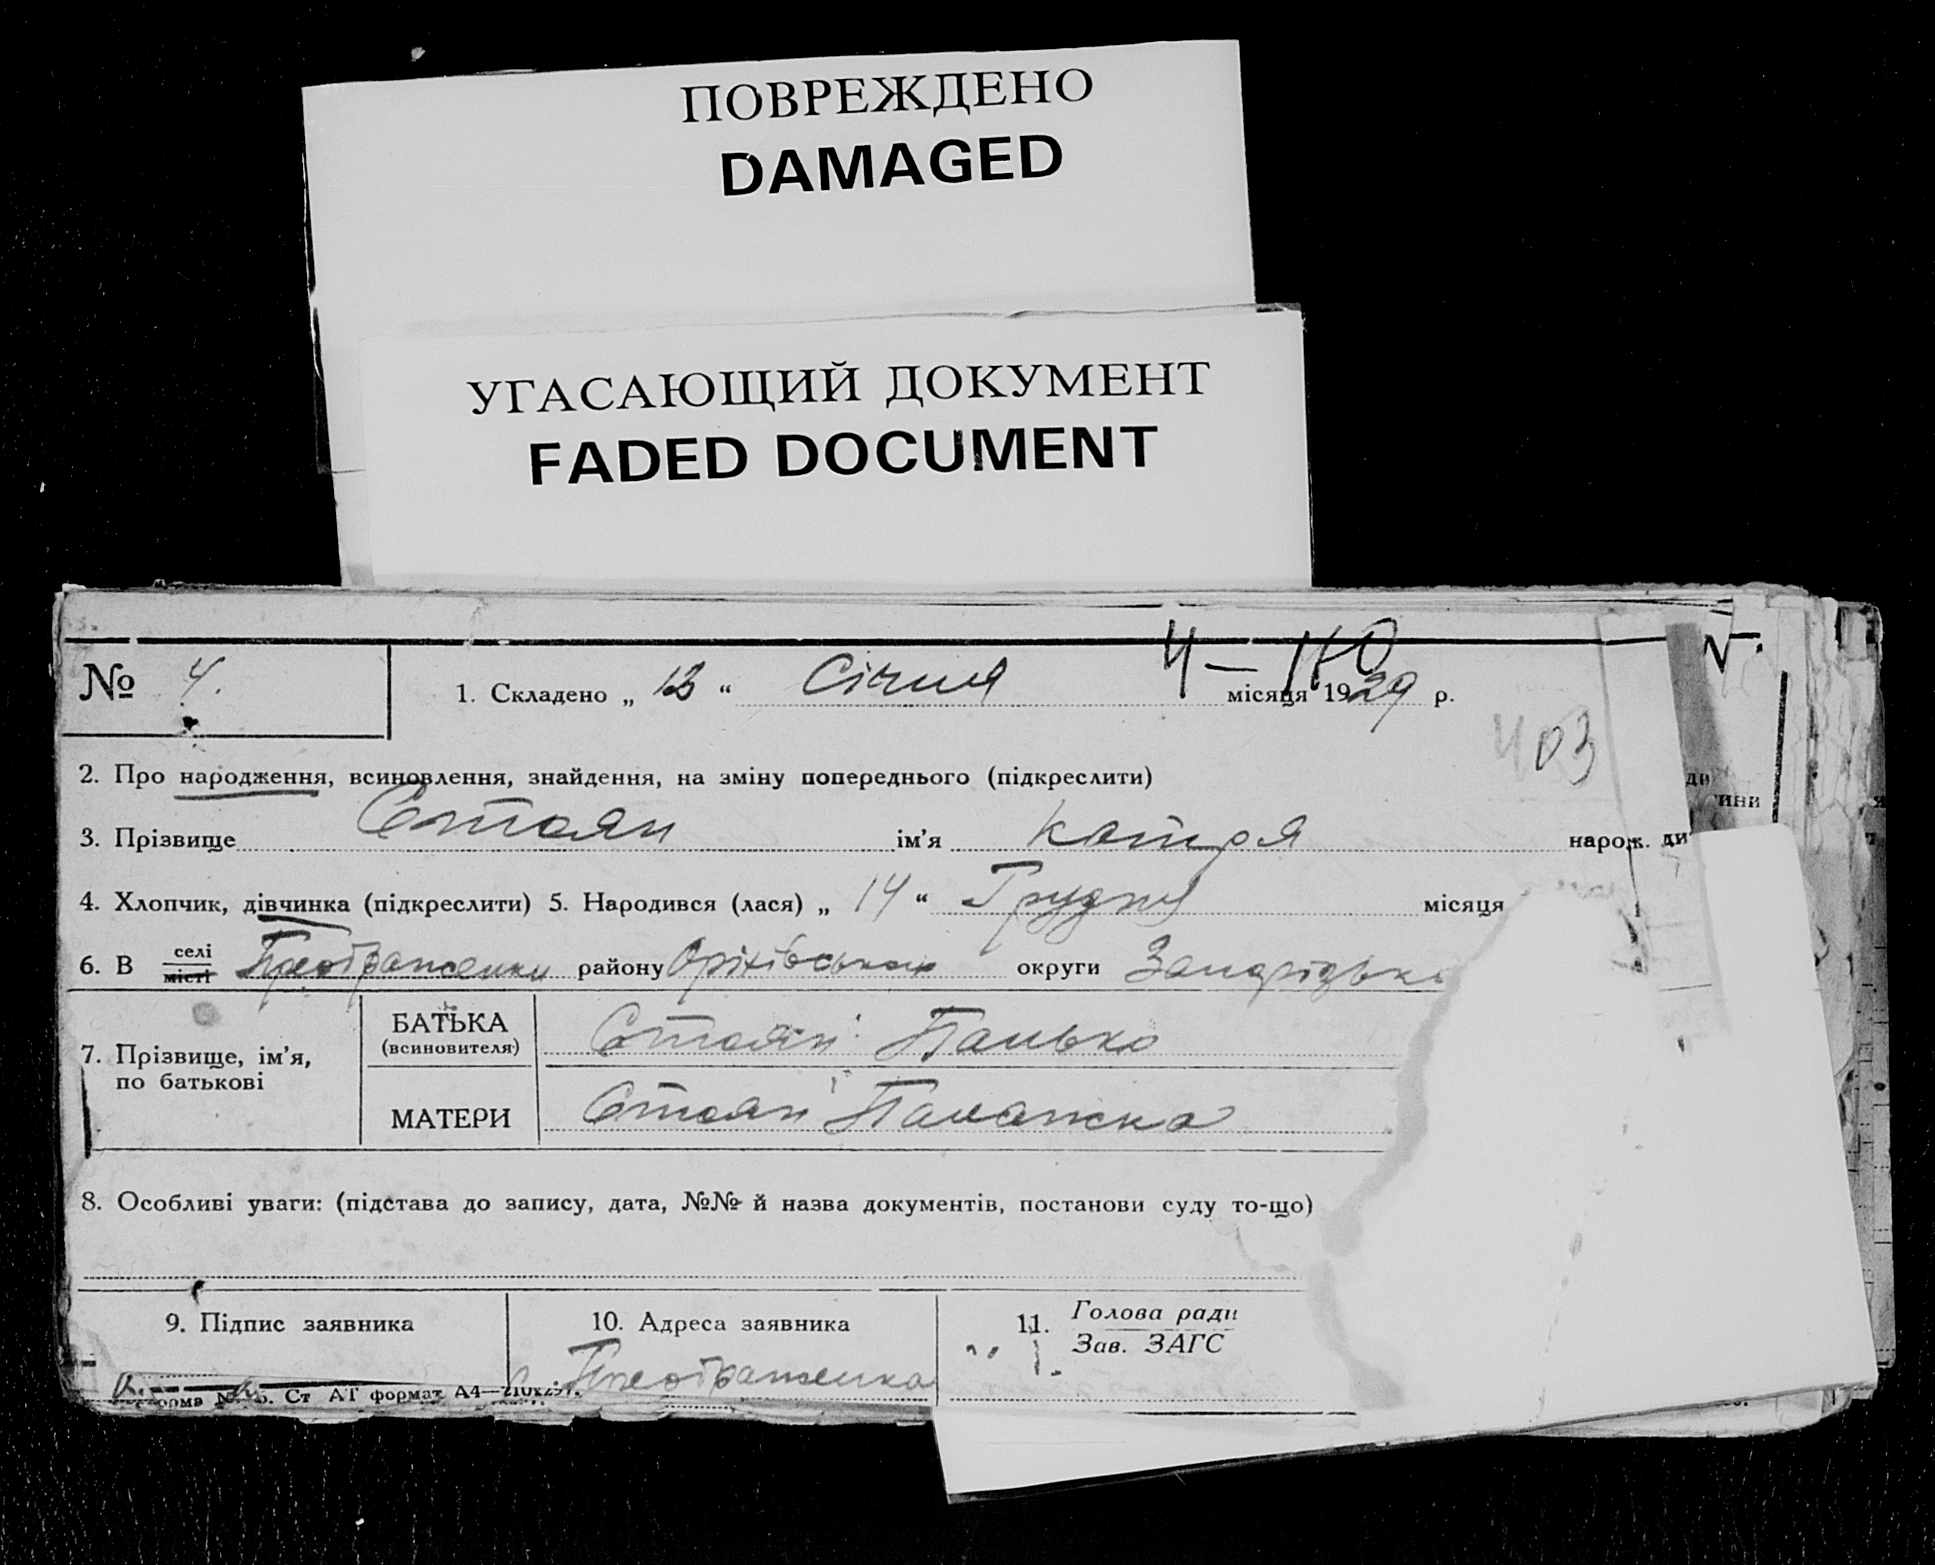 ПОВРЕЖДЕНО
DAMAGED
УГАСАЮЩИЙ ДОКУМЕНТ
FADED DOCUMENT
4 — 110
№ 4. 1. Складено „ 13 “ Січня місяця 1929 р.
403
2. Про народження, всиновлення, знайдення, на зміну попереднього (підкреслити)
3. Прізвище Стоян ім'я Катря народ. ди
4. Хлопчик, дівчинка (підкреслити) 5. Народився (лася) „ 14 “ Грудня місяця
6. В селі місті Преображенки району Оріхівського округи Запорізько
7. Прізвище, ім'я, по батькові
БАТЬКА (всиновителя) Стоян Панько
МАТЕРИ Стоян Палажка
8. Особливі уваги: (підстава до запису, дата, №№ й назва документів, постанови суду то-що)
9. Підпис заявника 10. Адреса заявника 11. Голова ради
Зав. ЗАГС
с. Преображенка
форма № Ст АТ формат А4—210x297.